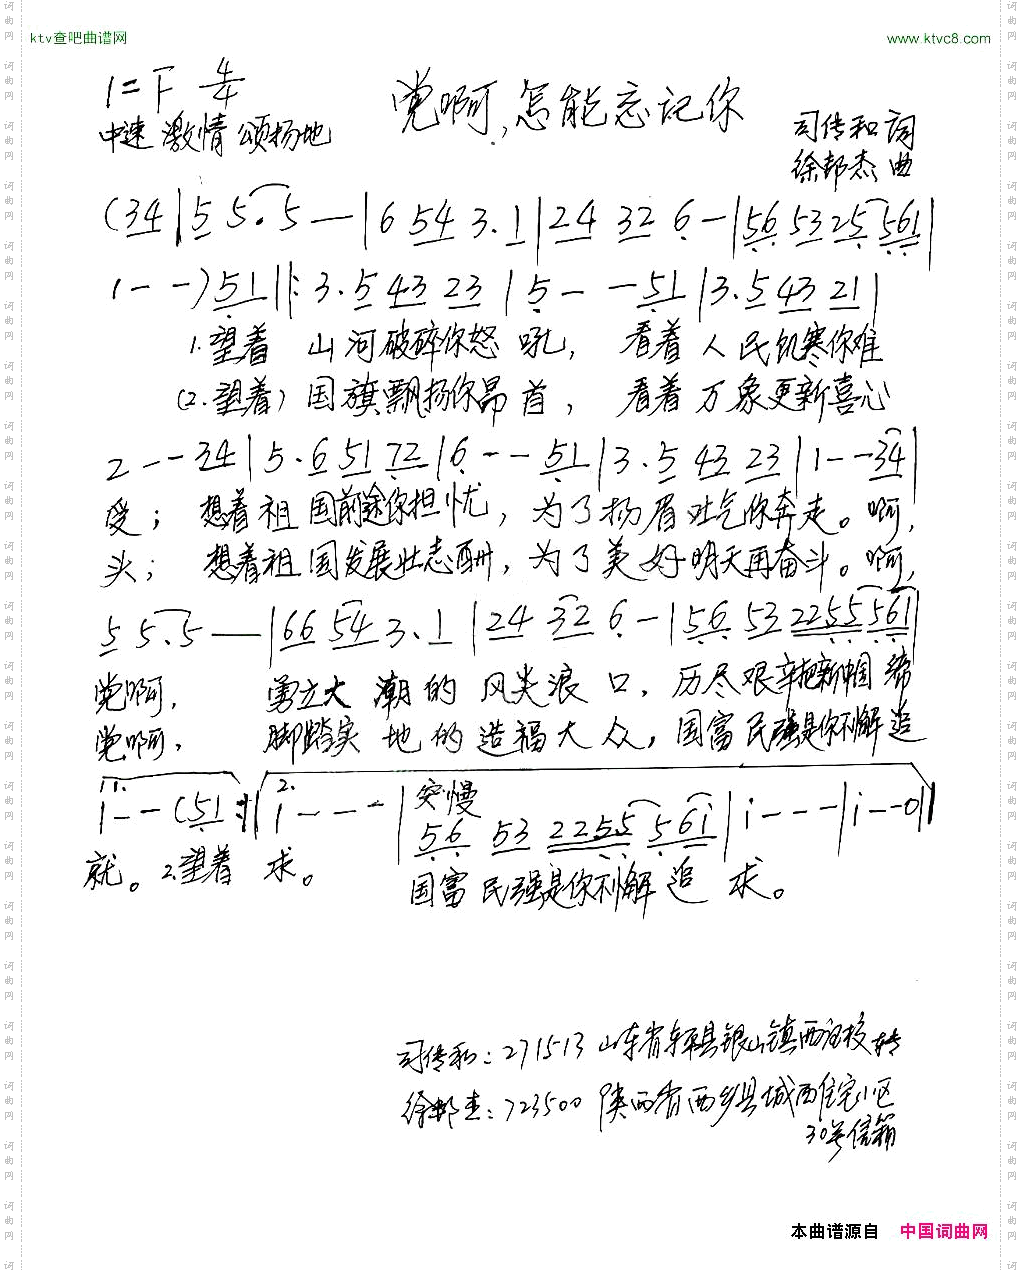 ktv查吧曲谱网
www.ktvc8.com
1=F 4/4
党啊,怎能忘记你
中速 激情 颂扬地
司传和 词
徐邦杰 曲
(34|5 5.5 —|6 54 3.1|24 32 6 —|56 53 25 561|
1 - -)51||:3.5 43 23|5 - - 51|3.5 43 21|
1.望着 山河破碎你怒吼, 看着人民饥寒你难
(2.望着) 国旗飘扬你昂首, 看着万象更新喜心
2 - - 34|5.6 51 72|6 - - 51|3.5 43 23|1 - - 34|
受; 想着祖国前途你担忧, 为了扬眉吐气你奔走。啊,
头; 想着祖国发展壮志酬, 为了美好明天再奋斗。啊,
5 5.5 —|66 54 3.1|24 32 6 —|56 53 2255 561|
党啊, 勇立大潮的风尖浪口, 历尽艰辛把新中国缔
党啊, 脚踏实地的造福大众, 国富民强是你不懈追
1. 2. 突慢
1 - - (51:||1 - - -|56 53 2255 561|1 - - -|1 - - 0||
就。2.望着 求。
国富民强是你不懈追 求。
司传和: 271513 山东省东平县银山镇西汪校转
徐邦杰: 723500 陕西省西乡县城西住宅小区
30号信箱
本曲谱源自 中国词曲网